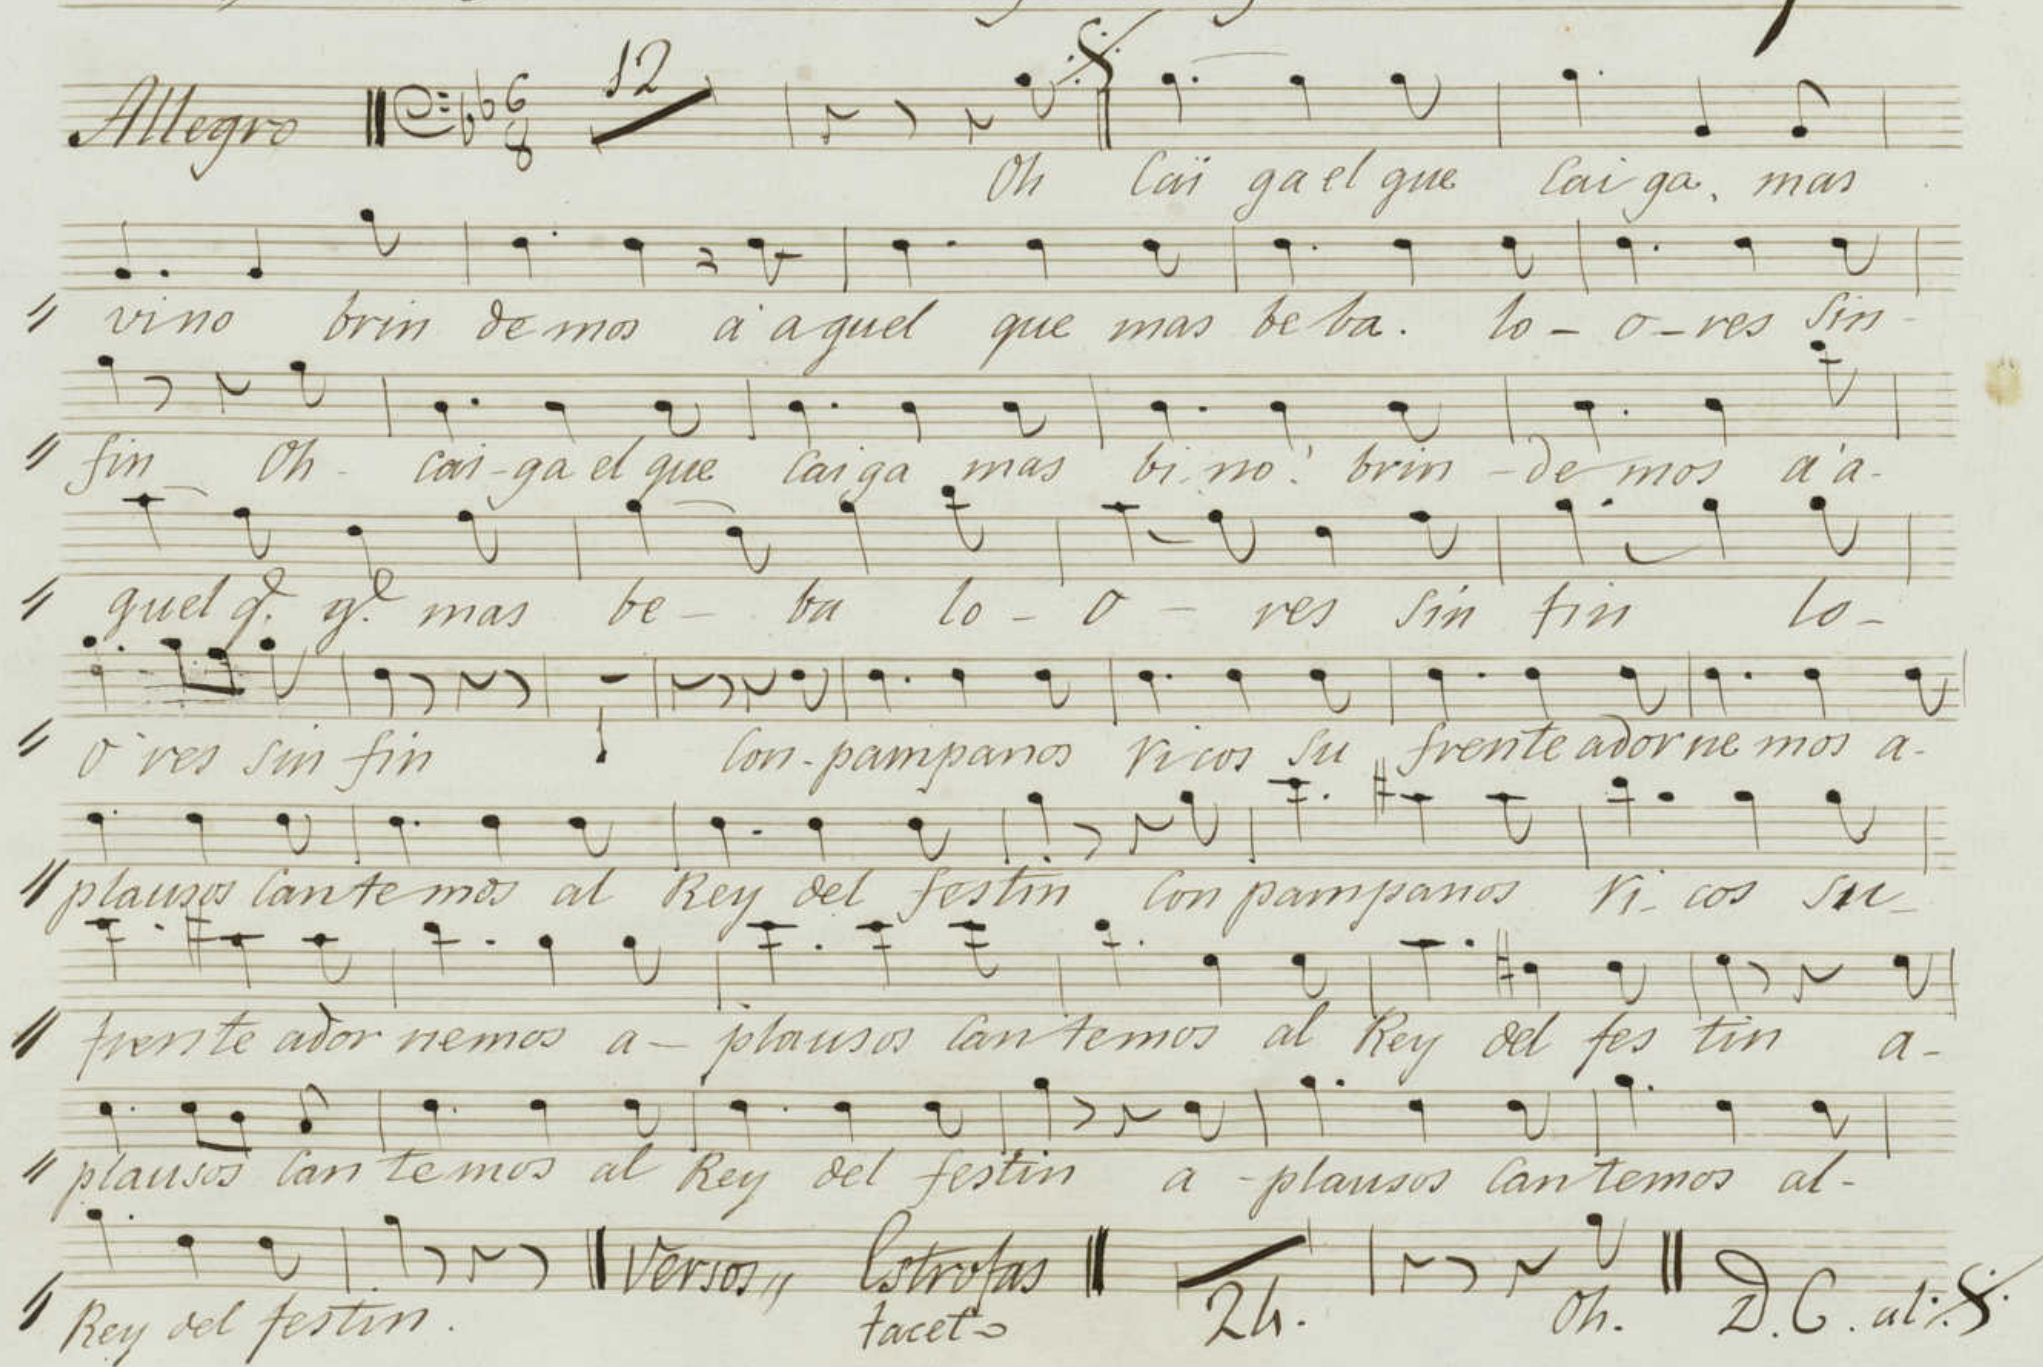 Allegro 6 8 12
Oh Cai ga el que Cai ga, mas
vino brin de mos a' aquel que mas be ba. lo - o - res Sin -
fin Oh - cai - ga el que Cai ga mas bi. no! brin - de mos a' a -
quel q.e q.e mas be - ba lo - o - res Sin fin lo -
o' res Sin fin Con - pampanos Ricos Su frente ador ne mos a -
plausos Cantemos al Rey del festin Con pampanos Ri - cos Su -
frente ador nemos a - plausos Cantemos al Rey del fes tin a -
plausos Can te mos al Rey del festin a - plausos Cantemos al -
Versos,, Estrofas
Rey del festin. tacet 24. Oh. D. C. al